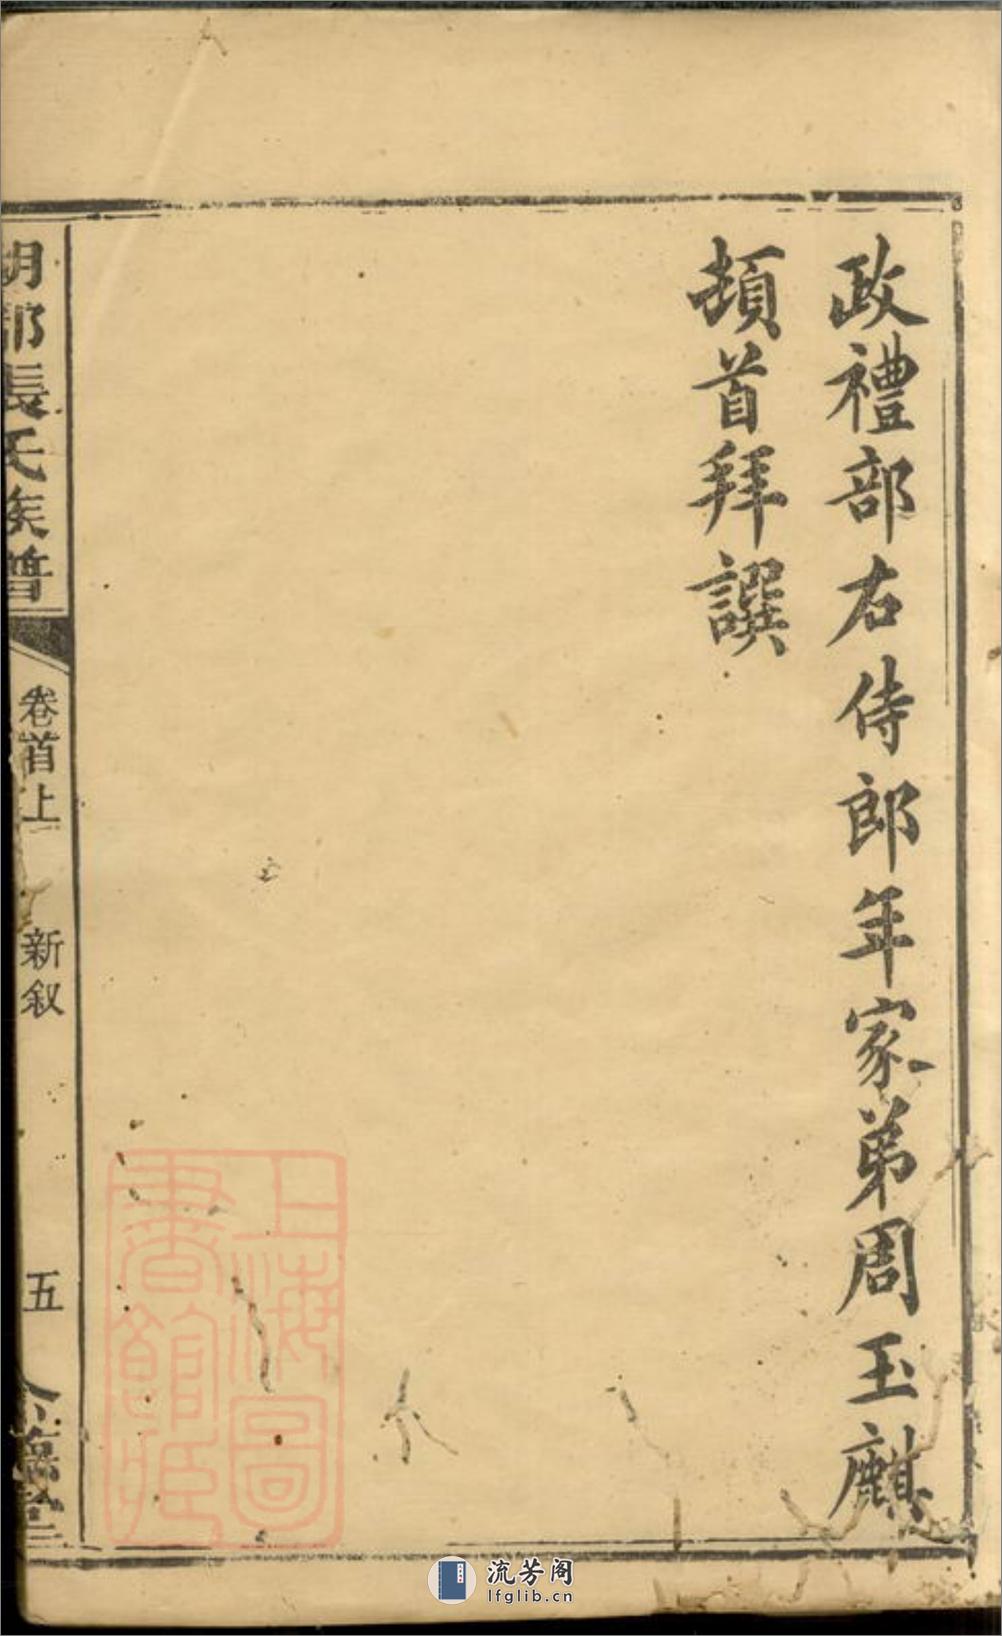 政禮部右侍郎年家弟周玉麒
頓首拜譔
胡部張氏族譜
卷首上
新叙
五
上海圖
書館藏
流芳阁
lfglib.cn